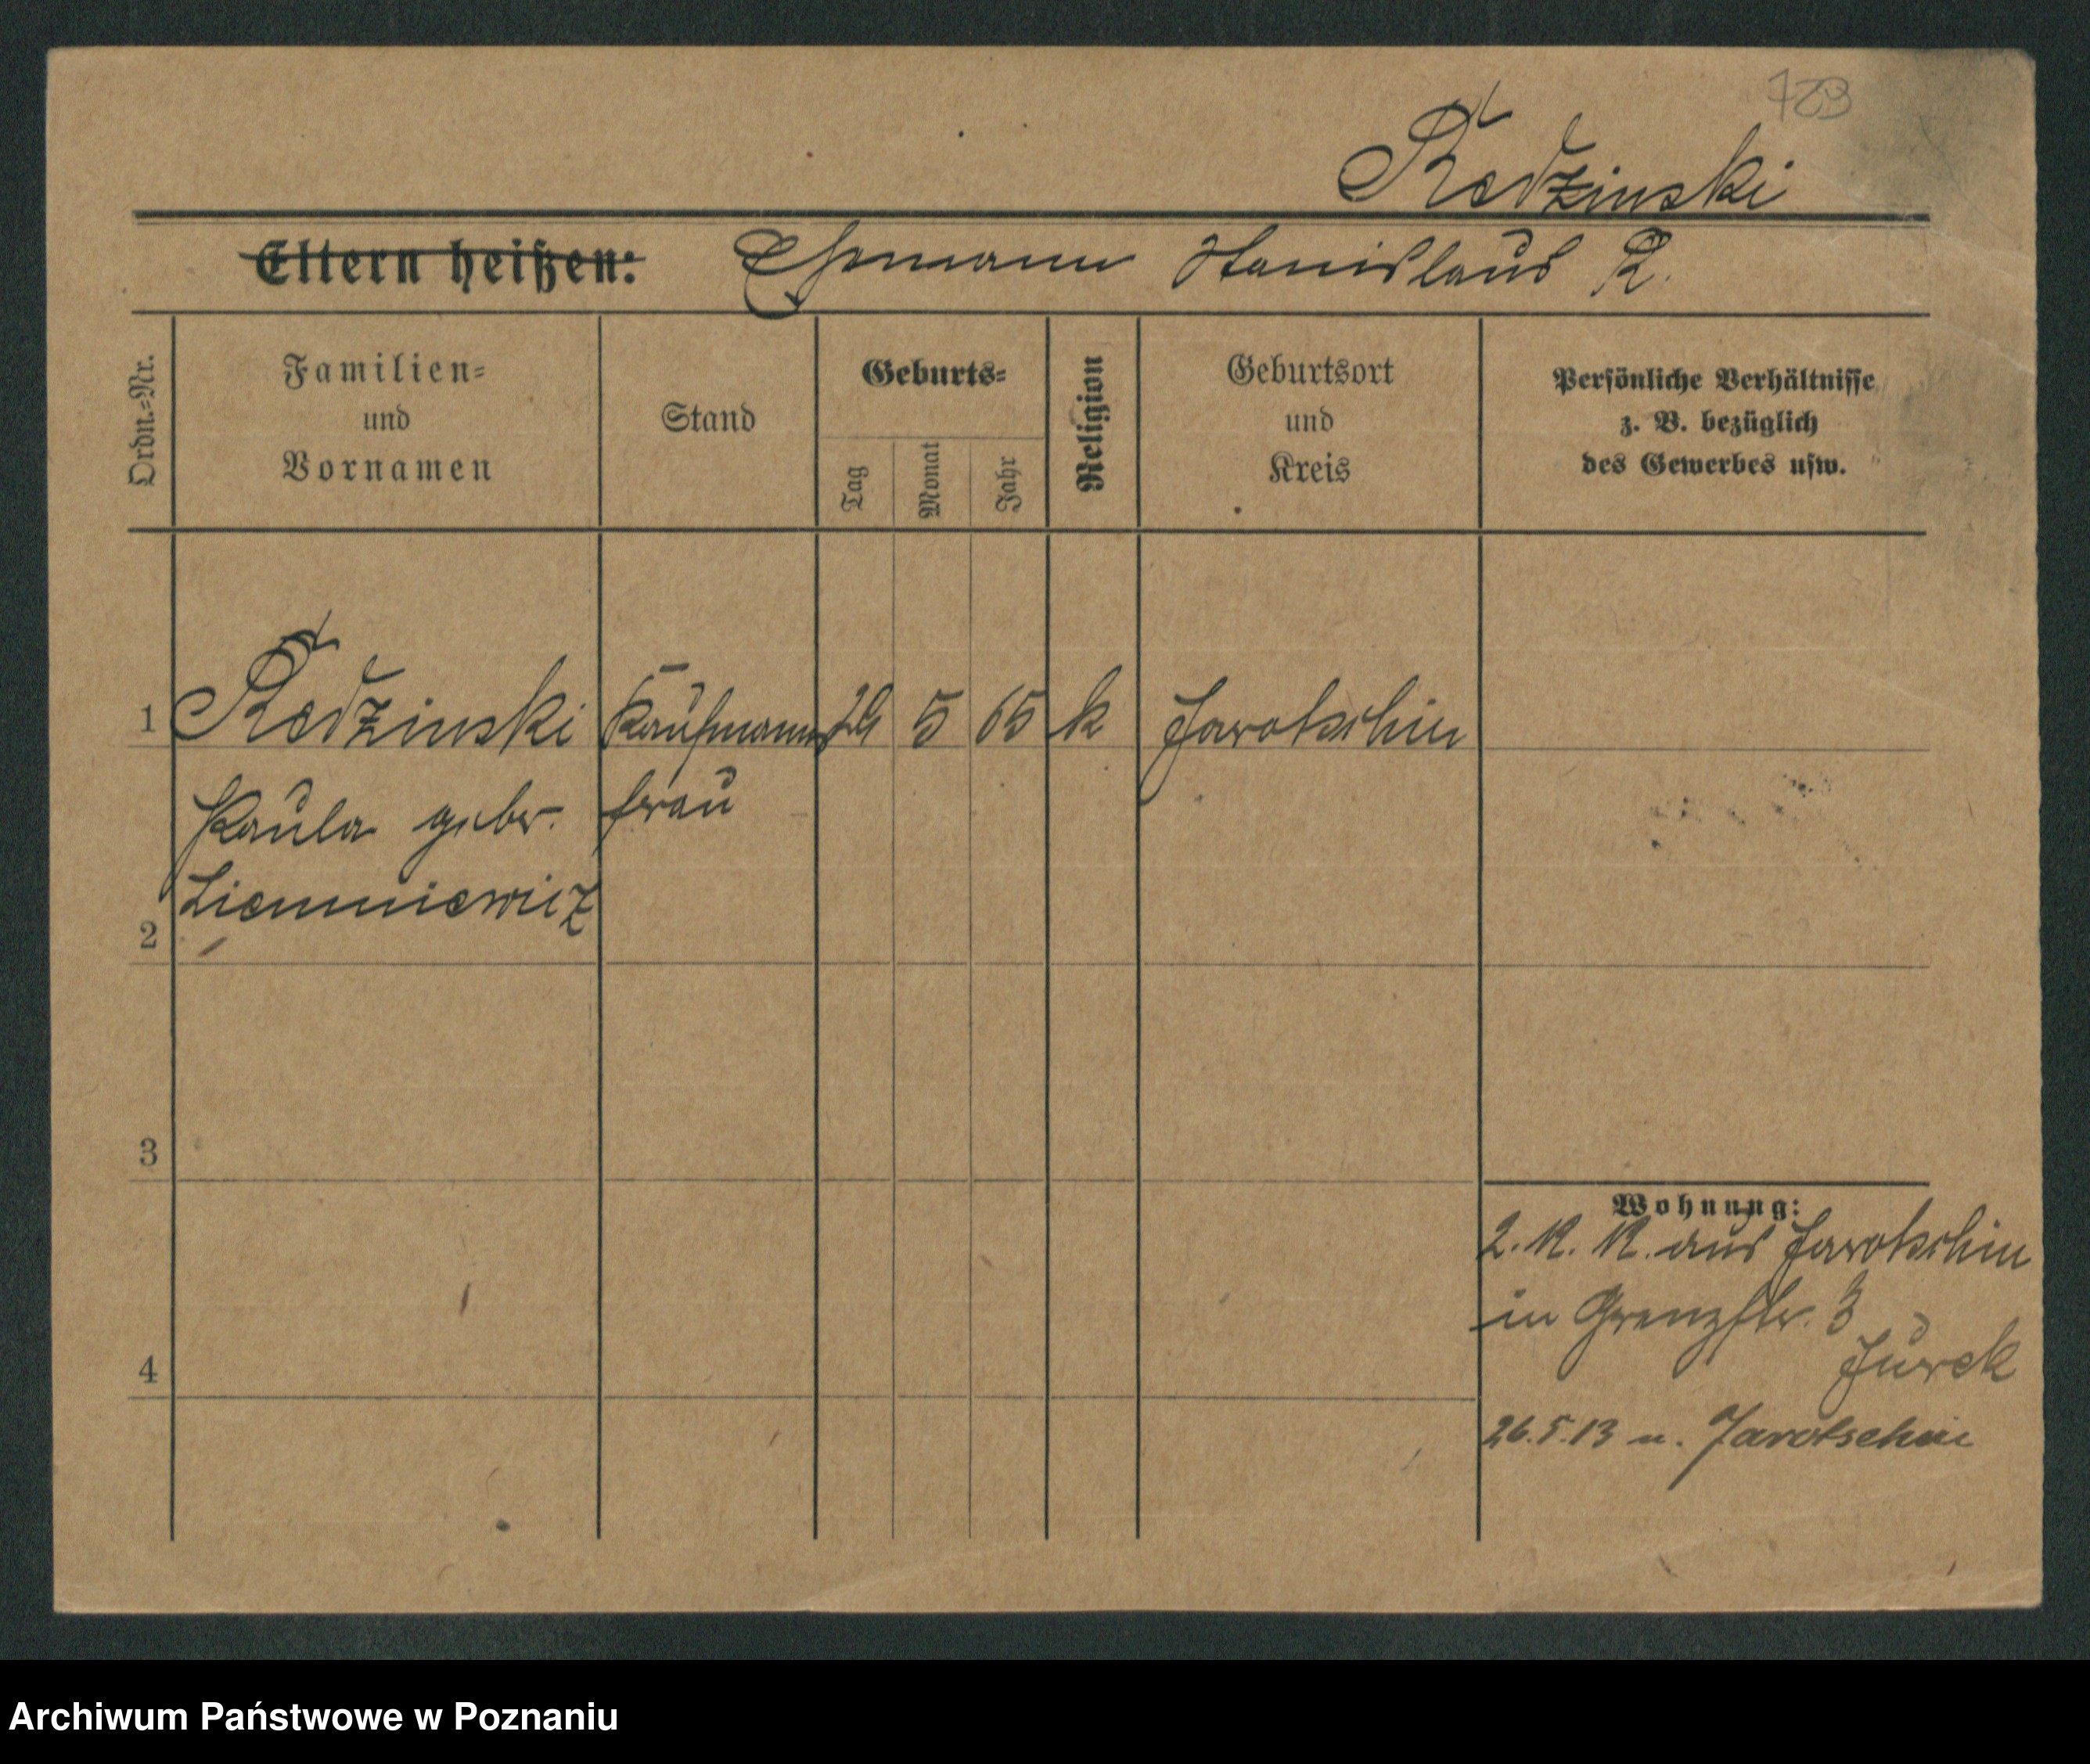 723
Redzinski
Eltern heißen: Ehemann Stanislaus R.
Ordn.=Nr.
Familien=
und
Vornamen
Stand
Geburts=
Tag
Monat
Jahr
Religion
Geburtsort
und
Kreis
Persönliche Verhältnisse
z. B. bezüglich
des Gewerbes usw.
1 Redzinski Kaufmanns 5 65 k Jarotschin
Paula geber. frau
2
3
4
Wohnung:
aus Jarotschin
in Grenzstr. 3
Jurek
26.5.13 n. Jarotschin
Archiwum Państwowe w Poznaniu